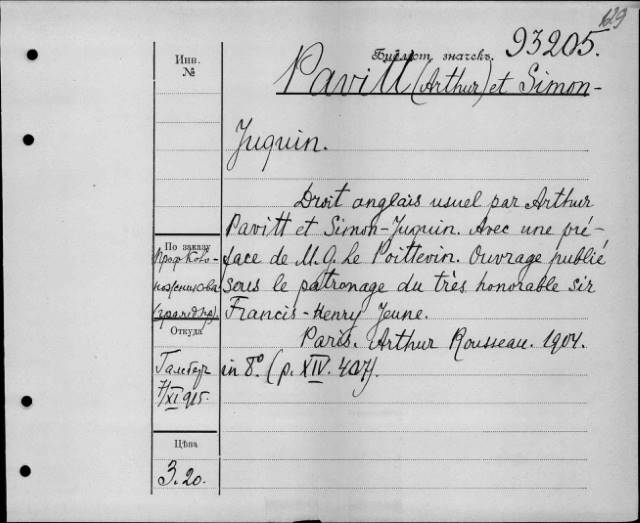 129
Библіот. значекъ. 93205.
Инв.
№
Pavitt (Arthur) et Simon-
Juquin.
Droit anglais usuel par Arthur
Pavitt et Simon-Juquin. Avec une pré-
face de M. G. Le Poittevin. Ouvrage publié
sous le patronage du très honorable sir
Francis-Henry Jeune.
Paris. Arthur Rousseau. 1904.
in 8°. (p. XIV. 407).
По заказу
Проф. Кова-
(гражд. пр.)
Откуда
7/XI 915.
Цѣна
3.20.